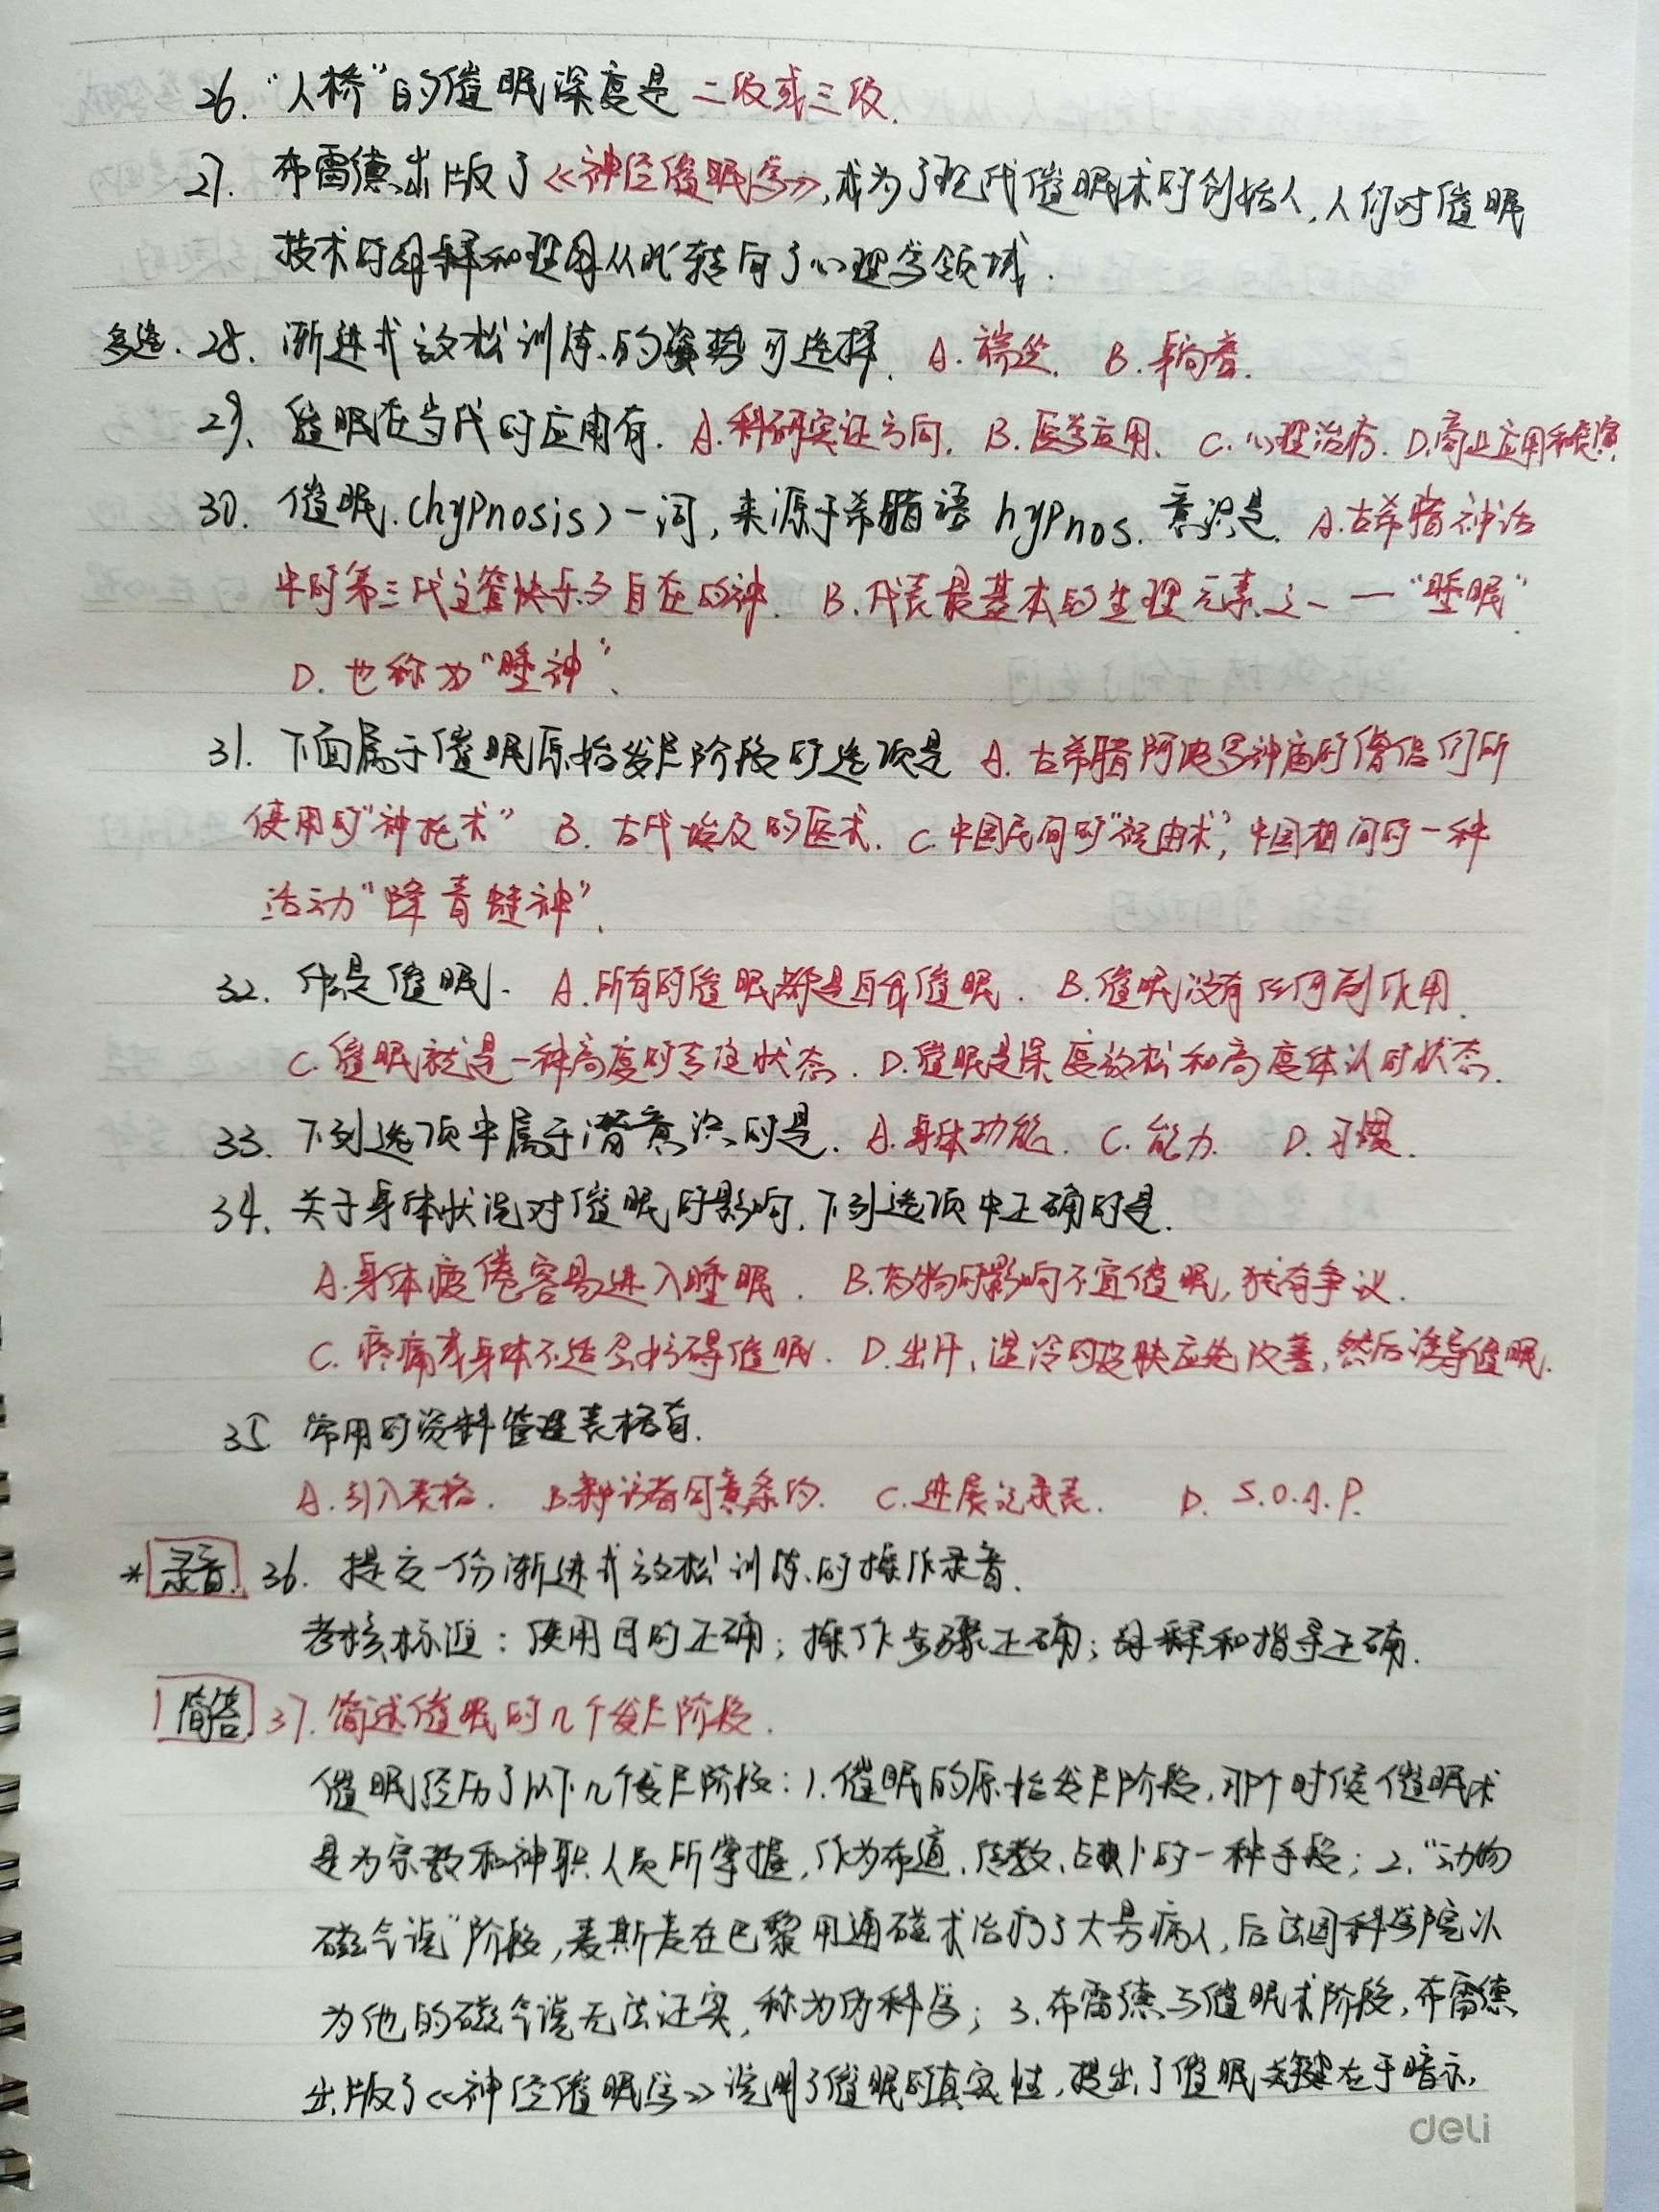 26. “人桥”的催眠深度是 二级或三级.
27. 布雷德出版了《神经催眠学》,成为了现代催眠术的创始人,人们对催眠
技术的解释和理解从此转向了心理学领域.
多选. 28. 渐进式放松训练的姿势可选择. A.端坐. B.躺着.
29. 催眠在当代的应用有. A.科研实证方向. B.医学应用. C.心理治疗. D.商业应用和表演
30. 催眠.(hypnosis)一词,来源于希腊语 hypnos. 意识是. A.古希腊神话
中的第三代主管快乐与自在的神. B.代表最基本的生理元素之一一“睡眠”.
D. 也称为“睡神”.
31. 下面属于催眠原始发展阶段的选项是 A. 古希腊阿波罗神庙的僧侣们所
使用的“神托术” B. 古代埃及的医术. C.中国民间的“祝由术”,中国相间的一种
活动“降青蛙神”.
32. 什么是催眠. A.所有的催眠都是自我催眠. B.催眠没有任何副作用.
C.催眠就是一种高度的专注状态. D.催眠是深度放松和高度体认的状态.
33. 下列选项中属于潜意识的是. A.身体功能. C.能力. D.习惯.
34. 关于身体状况对催眠的影响,下列选项中正确的是.
A.身体疲倦容易进入睡眠. B.药物的影响不宜催眠,犹有争议.
C.疼痛或身体不适会妨碍催眠. D.出汗、湿冷的皮肤应先改善,然后诱导催眠.
35 常用的资料管理表格有.
A.引入表格. B.来访者同意条约. C.进展记录表. D. S.O.A.P.
*录音. 36. 提交一份渐进式放松训练的操作录音.
考核标准:使用目的正确;操作步骤正确;解释和指导正确.
简答 37.简述催眠的几个发展阶段.
催眠经历了以下几个发展阶段:1.催眠的原始发展阶段,那个时候催眠术
是为宗教和神职人员所掌握,作为布道、传教、占卜的一种手段;2.“动物
磁气说”阶段,麦斯麦在巴黎用通磁术治疗了大号病人,后法国科学院以
为他的磁气说无法证实,称为伪科学;3.布雷德与催眠术阶段,布雷德
出版了《神经催眠学》说明了催眠的真实性,提出了催眠关键在于暗示,
deli